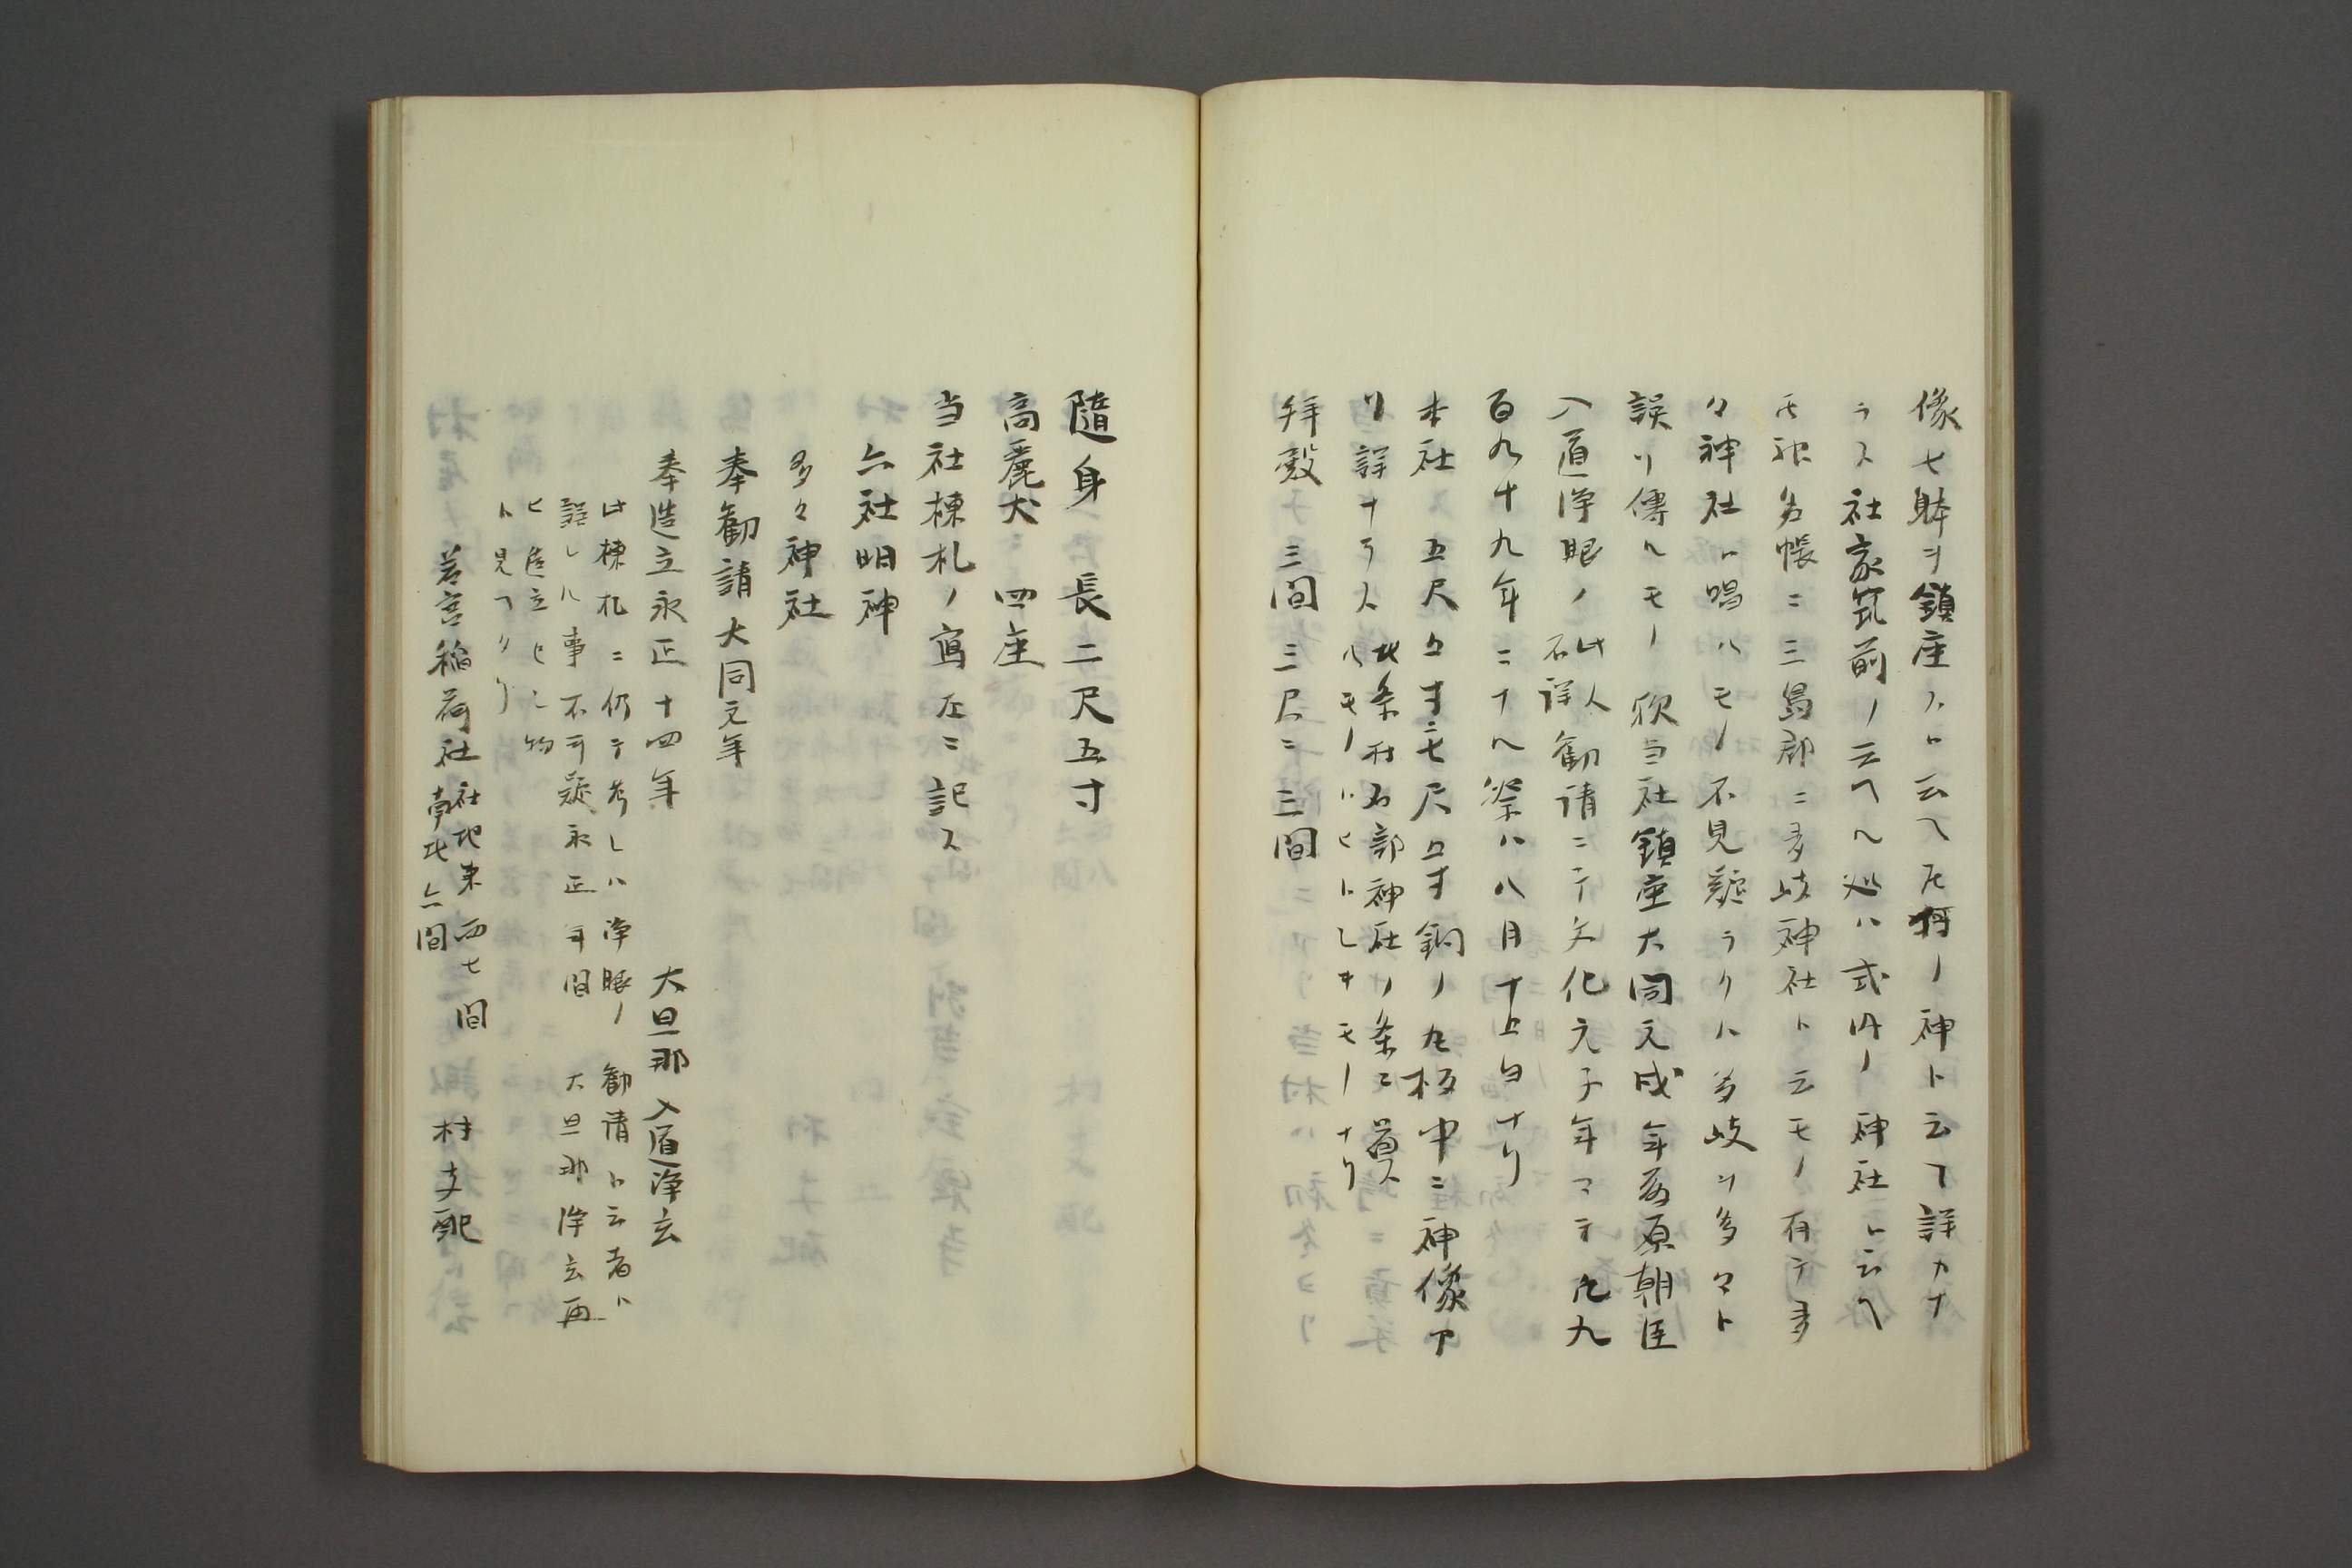 像七躰ヲ鎮座スト云ヘ𪜈何ノ神ト云フ詳カナ
ラス社家筑前ノ云ヘル処ハ式内ノ神社ト云ヘ
𪜈神名帳ニ三島郡ニ多岐神社ト云モノ有テ多
々神社ト唱ハモノ不見疑ラクハ多岐ヲ多々ト
誤リ傳ヘルモノ歟当社鎮座大同元戌年菅原朝臣
入道浄眼ノ此人不詳勧請ニテ文化元子年マテ凡九
百九十九年ニナル祭ハ八月十五日ナリ
本社五尺五寸ニ七尺五寸銅ノ丸板中ニ神像ア
リ詳ナラス此条村石部神社ノ条ニ員ス
ルモノトヒトシキモノナリ
拜殿三間三尺ニ三間
隨身長二尺五寸
高麗犬 四座
当社棟札ノ寫左ニ記ス
六社明神
多々神社
奉勧請大同元年
奉造立永正十四年 大旦那入道浄玄
此棟札ニ仍テ考レハ浄眼ノ勧請ト云者ハ
誤レル事不可疑永正年間大旦那浄玄再
ヒ造立セシ物
ト見ヘタリ
若宮稲荷社 社地東西七間 南北六間 村支配